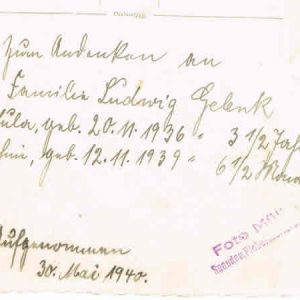 Zum Andenken an
Familie Ludwig
geb. 20.11.1936 " 3 1/2 Jah
geb. 12.11.1939 " 6 1/2 Mona
Aufgenommen
30. Mai 1940.
Foto